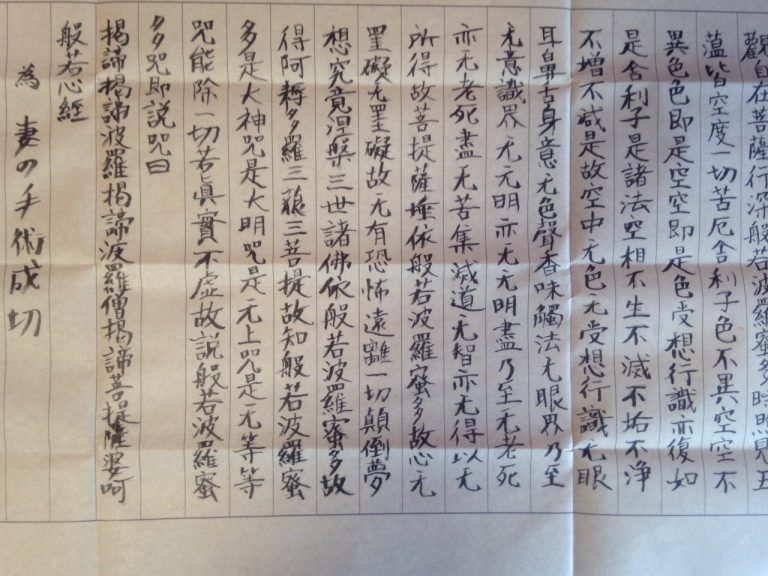 觀自在菩薩行深般若波羅蜜多時照見五
薀皆空度一切苦厄舎利子色不異空空不
異色色即是空空即是色受想行識亦復如
是舎利子是諸法空相不生不滅不垢不浄
不増不減是故空中无色无受想行識无眼
耳鼻舌身意无色聲香味觸法无眼界乃至
无意識界无无明亦无无明盡乃至无老死
亦无老死盡无苦集滅道无智亦无得以无
所得故菩提薩埵依般若波羅蜜多故心无
罣礙无罣礙故无有恐怖遠離一切顛倒夢
想究竟涅槃三世諸佛依般若波羅蜜多故
得阿耨多羅三藐三菩提故知般若波羅蜜
多是大神咒是大明咒是无上咒是无等等
咒能除一切苦眞實不虚故説般若波羅蜜
多咒即説咒曰
揭諦揭諦波羅揭諦波羅僧揭諦菩提薩婆呵
般若心經
為 妻の手術成切